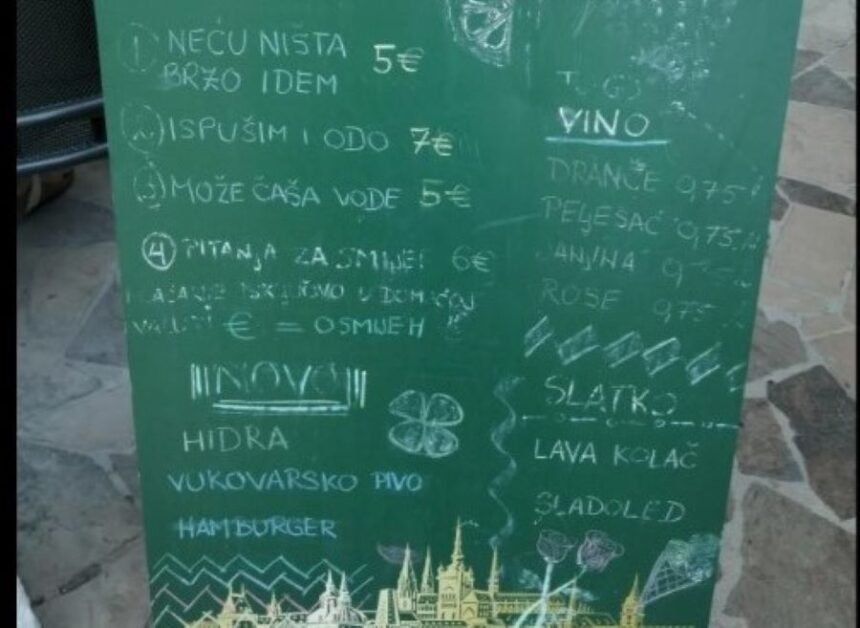 1 NEĆU NIŠTA
BRZO IDEM 5€
2. ISPUŠIM I ODO 7€
3 MOŽE ČAŠA VODE 5€
4 PITANJA ZA SMIJEH 6€
PLAĆANJE ISKLJUČIVO U DOMAĆOJ
VALUTI € = OSMIJEH
NOVO
HIDRA
VUKOVARSKO PIVO
HAMBURGER
VINO
DRANČE 0,75
PELJEŠAC 0,75
ROSE 0,75
SLATKO
LAVA KOLAČ
SLADOLED